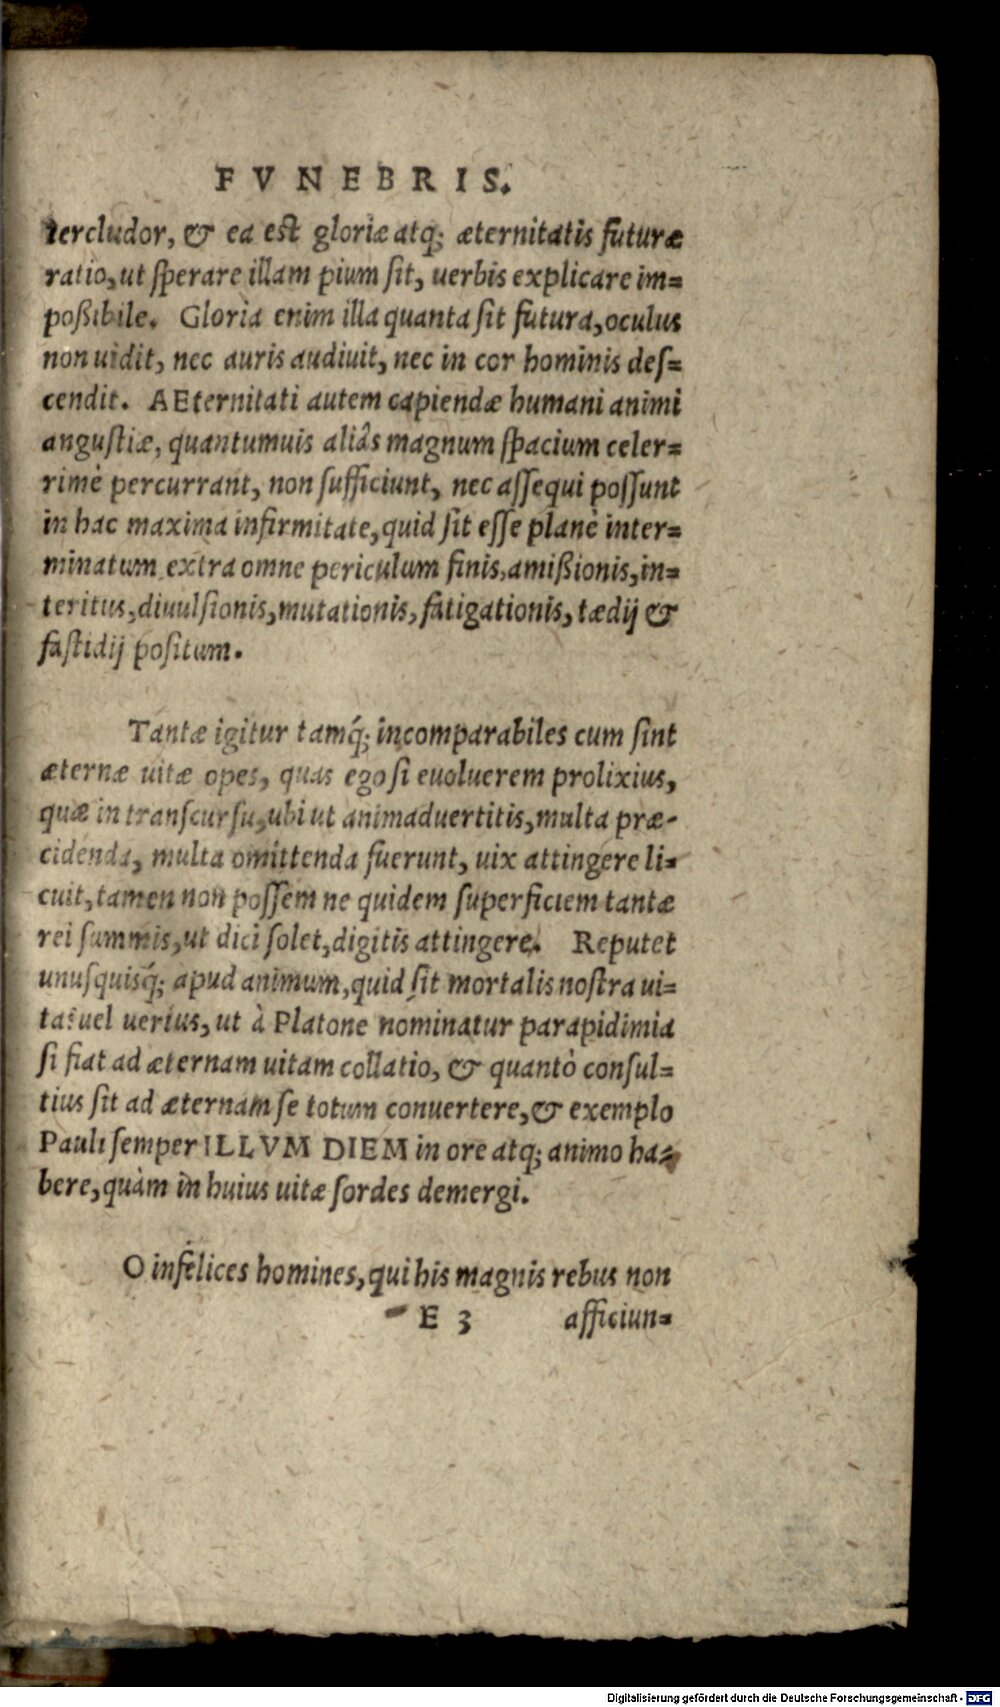 FVNEBRIS.
tercludor, & ea est gloriæ atq; æternitatis futuræ
ratio, ut sperare illam pium sit, uerbis explicare im=
poßibile. Gloria enim illa quanta sit futura, oculus
non uidit, nec auris audiuit, nec in cor hominis des=
cendit. AEternitati autem capiendæ humani animi
angustiæ, quantumuis aliâs magnum spacium celer=
rimè percurrant, non sufficiunt, nec assequi possunt
in hac maxima infirmitate, quid sit esse planè inter=
minatum extra omne periculum finis, amißionis, in=
teritus, diuulsionis, mutationis, fatigationis, tædij &
fastidij positum.
Tantæ igitur tamq́; incomparabiles cum sint
æternæ uitæ opes, quas ego si euoluerem prolixius,
quæ in transcursu, ubi ut animaduertitis, multa præ-
cidenda, multa omittenda fuerunt, uix attingere li=
cuit, tamen non possem ne quidem superficiem tantæ
rei summis, ut dici solet, digitis attingere. Reputet
unusquisq́; apud animum, quid sit mortalis nostra ui=
ta: uel uerius, ut à Platone nominatur parapidimia
si fiat ad æternam uitam collatio, & quantò consul=
tius sit ad æternam se totum conuertere, & exemplo
Pauli semper ILLVM DIEM in ore atq; animo ha=
bere, quàm in huius uitæ sordes demergi.
O infelices homines, qui his magnis rebus non
E 3 afficiun=
Digitalisierung gefördert durch die Deutsche Forschungsgemeinschaft - DFG